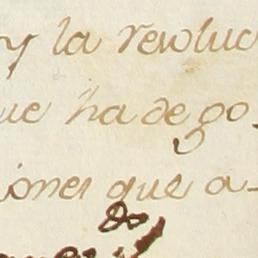 y la revoluc
ue ha de go-
iones que a-